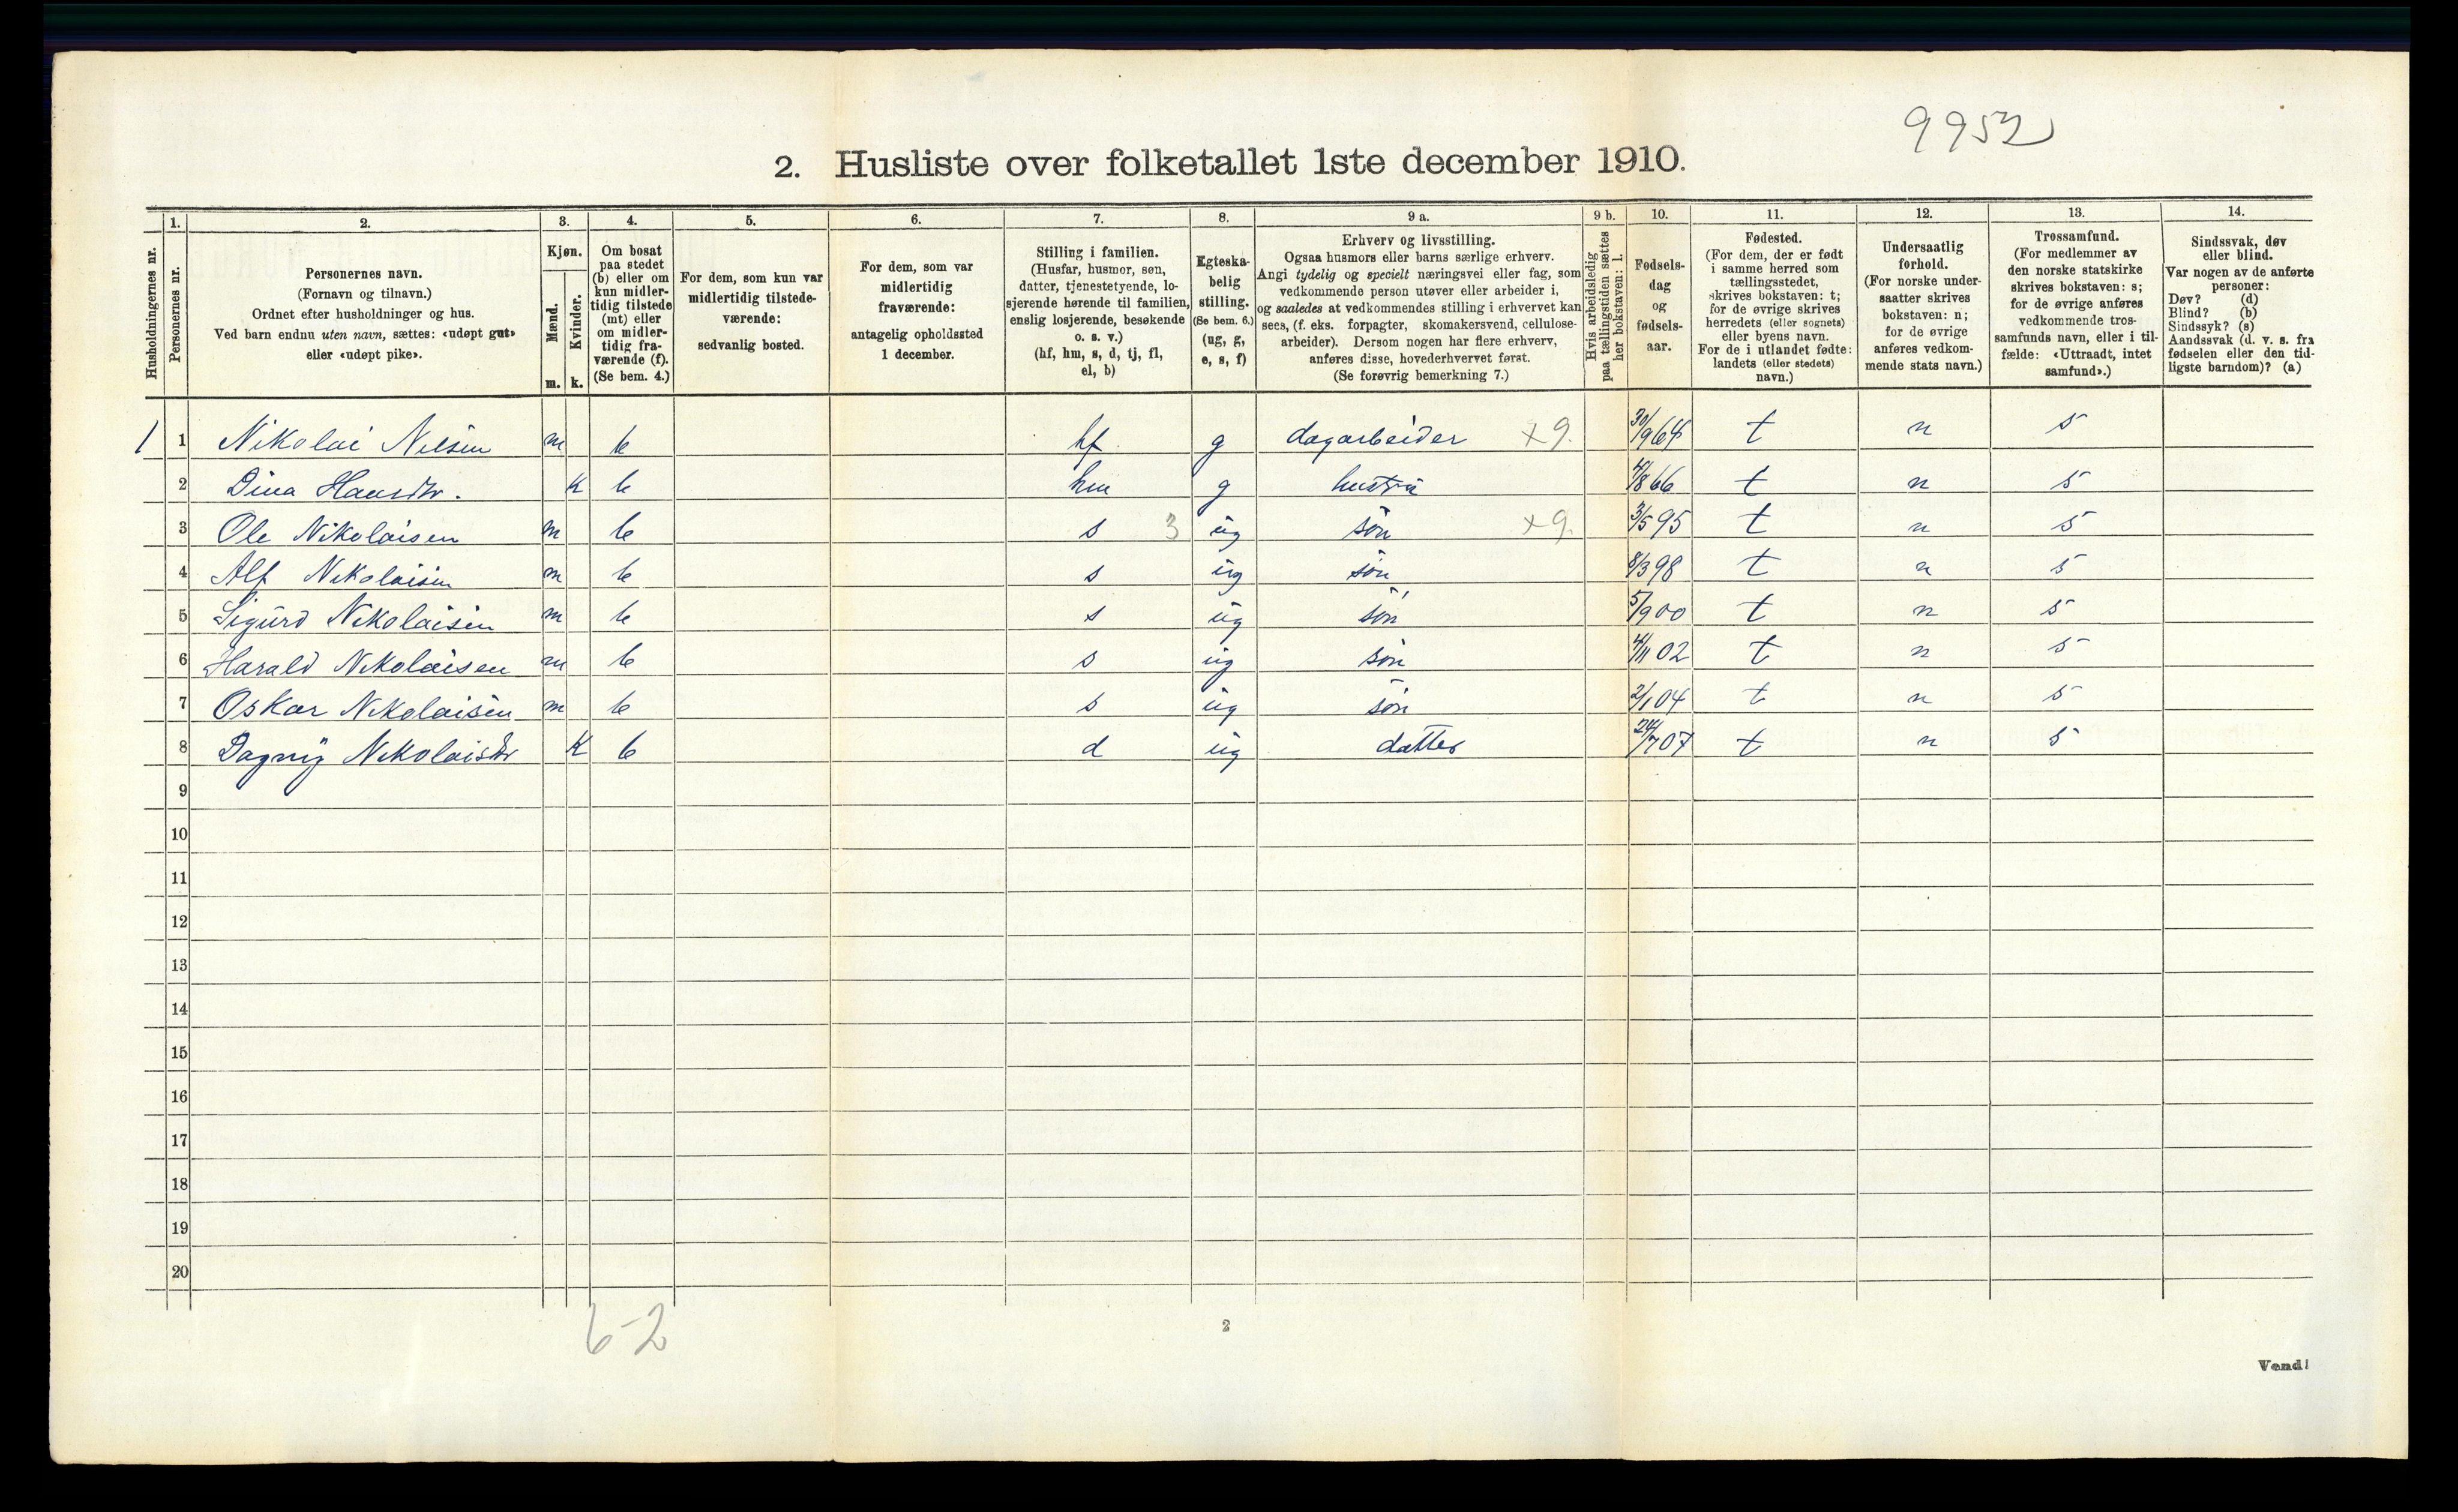 9952
2. Husliste over folketallet 1ste december 1910.
1. 2. 3. 4. 5. 6. 7. 8. 9 a. 9 b. 10. 11. 12. 13. 14.
Husholdningernes nr.
Personernes nr.
Personernes navn.
(Fornavn og tilnavn.)
Ordnet efter husholdninger og hus.
Ved barn endnu uten navn, sættes: «udøpt gut»
eller «udøpt pike».
Kjøn.
Mænd.
Kvinder.
m. k.
Om bosat
paa stedet
(b) eller om
kun midler-
tidig tilstede
(mt) eller
om midler-
tidig fra-
værende (f).
(Se bem. 4.)
For dem, som kun var
midlertidig tilstede-
værende:
sedvanlig bosted.
For dem, som var
midlertidig
fraværende:
antagelig opholdssted
1 december.
Stilling i familien.
(Husfar, husmor, søn,
datter, tjenestetyende, lo-
sjerende hørende til familien,
enslig losjerende, besøkende
o. s. v.)
(hf, hm, s, d, tj, fl,
el, b)
Egteska-
belig
stilling.
(Se bem. 6.)
(ug, g,
e, s, f)
Erhverv og livsstilling.
Ogsaa husmors eller barns særlige erhverv.
Angi tydelig og specielt næringsvei eller fag, som
vedkommende person utøver eller arbeider i,
og saaledes at vedkommendes stilling i erhvervet kan
sees, (f. eks. forpagter, skomakersvend, cellulose-
arbeider). Dersom nogen har flere erhverv,
anføres disse, hovederhvervet først.
(Se forøvrig bemerkning 7.)
Hvis arbeidsledig
paa tællingstiden sættes
her bokstaven: l.
Fødsels-
dag
og
fødsels-
aar.
Fødested.
(For dem, der er født
i samme herred som
tællingsstedet,
skrives bokstaven: t;
for de øvrige skrives
herredets (eller sognets)
eller byens navn.
For de i utlandet fødte:
landets (eller stedets)
navn.)
Undersaatlig
forhold.
(For norske under-
saatter skrives
bokstaven: n;
for de øvrige
anføres vedkom-
mende stats navn.)
Trossamfund.
(For medlemmer av
den norske statskirke
skrives bokstaven: s;
for de øvrige anføres
vedkommende tros-
samfunds navn, eller i til-
fælde: «Uttraadt, intet
samfund».)
Sindssvak, døv
eller blind.
Var nogen av de anførte
personer:
Døv? (d)
Blind? (b)
Sindssyk? (s)
Aandssvak (d. v. s. fra
fødselen eller den tid-
ligste barndom)? (a)
1 1 Nikolai Nilsen m b hf g dagarbeider x9. 30/9 64 t n s
2 Dina Hansdtr. k b hm g hustru 4/8 66 t n s
3 Ole Nikolaisen m b s 3 ug søn x9. 3/5 95 t n s
4 Alf Nikolaisen m b s ug søn 8/3 98 t n s
5 Sigurd Nikolaisen m b s ug søn 5/9 00 t n s
6 Harald Nikolaisen m b s ug søn 4/11 02 t n s
7 Oskar Nikolaisen m b s ug søn 2/1 04 t n s
8 Dagny Nikolaisdtr k b d ug datter 24/7 07 t n s
9
10
11
12
13
14
15
16
17
18
19
20
6-2
2
Vend!